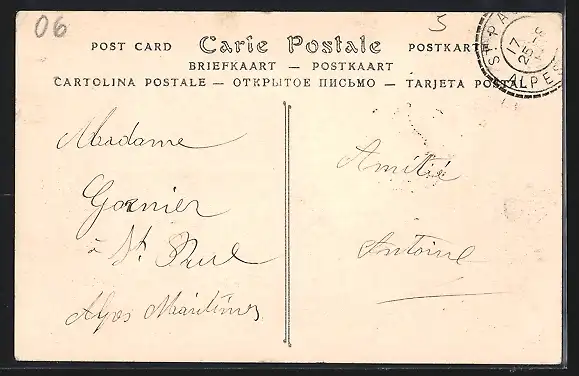 06
5
POST CARD Carie Postale POSTKARTE
BRIEFKAART — POSTKAART
CARTOLINA POSTALE — ОТКРЫТОЕ ПИСЬМО — TARJETA POSTAL
ST PA
17
25
ALPES
Madame
Garnier
à St Paul
Alpes Maritimes
Amitié
Antoine